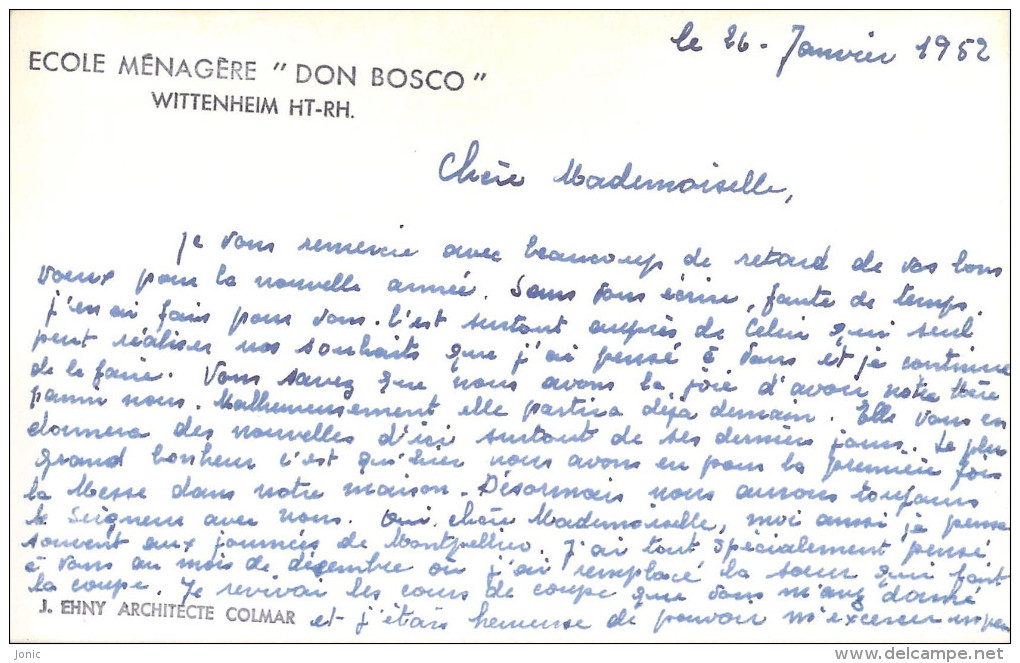 le 26 - Janvier 1952
ECOLE MÉNAGÈRE " DON BOSCO "
WITTENHEIM HT-RH.
Chère Mademoiselle,
Je vous remercie avec beaucoup de retard de vos bons
voeux pour la nouvelle année. Sans vous écrire, faute de temps,
j'en ai fais pour vous. C'est surtout auprès de Celui qui seul
peut réaliser nos souhaits que j'ai pensé à vous et je continue
de le faire. Vous savez que nous avons la joie d'avoir notre Mère
parmi nous. Malheureusement elle partira déjà demain. Elle vous en
donnera des nouvelles d'ici surtout de ses derniers jours. Le plus
grand bonheur c'est qu'hier nous avons eu pour la première fois
la Messe dans notre maison. Désormais nous aurons toujours
le Seigneur avec nous. Oui, chère Mademoiselle, moi aussi je pense
souvent aux journées de Montpellier. J'ai tout spécialement pensé
à vous au mois de décembre où j'ai remplacé la soeur qui fait
la coupe. Je revivais les cours de coupe que vous m'avez donné
et j'étais heureuse de pouvoir m'exercer un peu
J. EHNY ARCHITECTE COLMAR
Jonic
www.delcampe.net